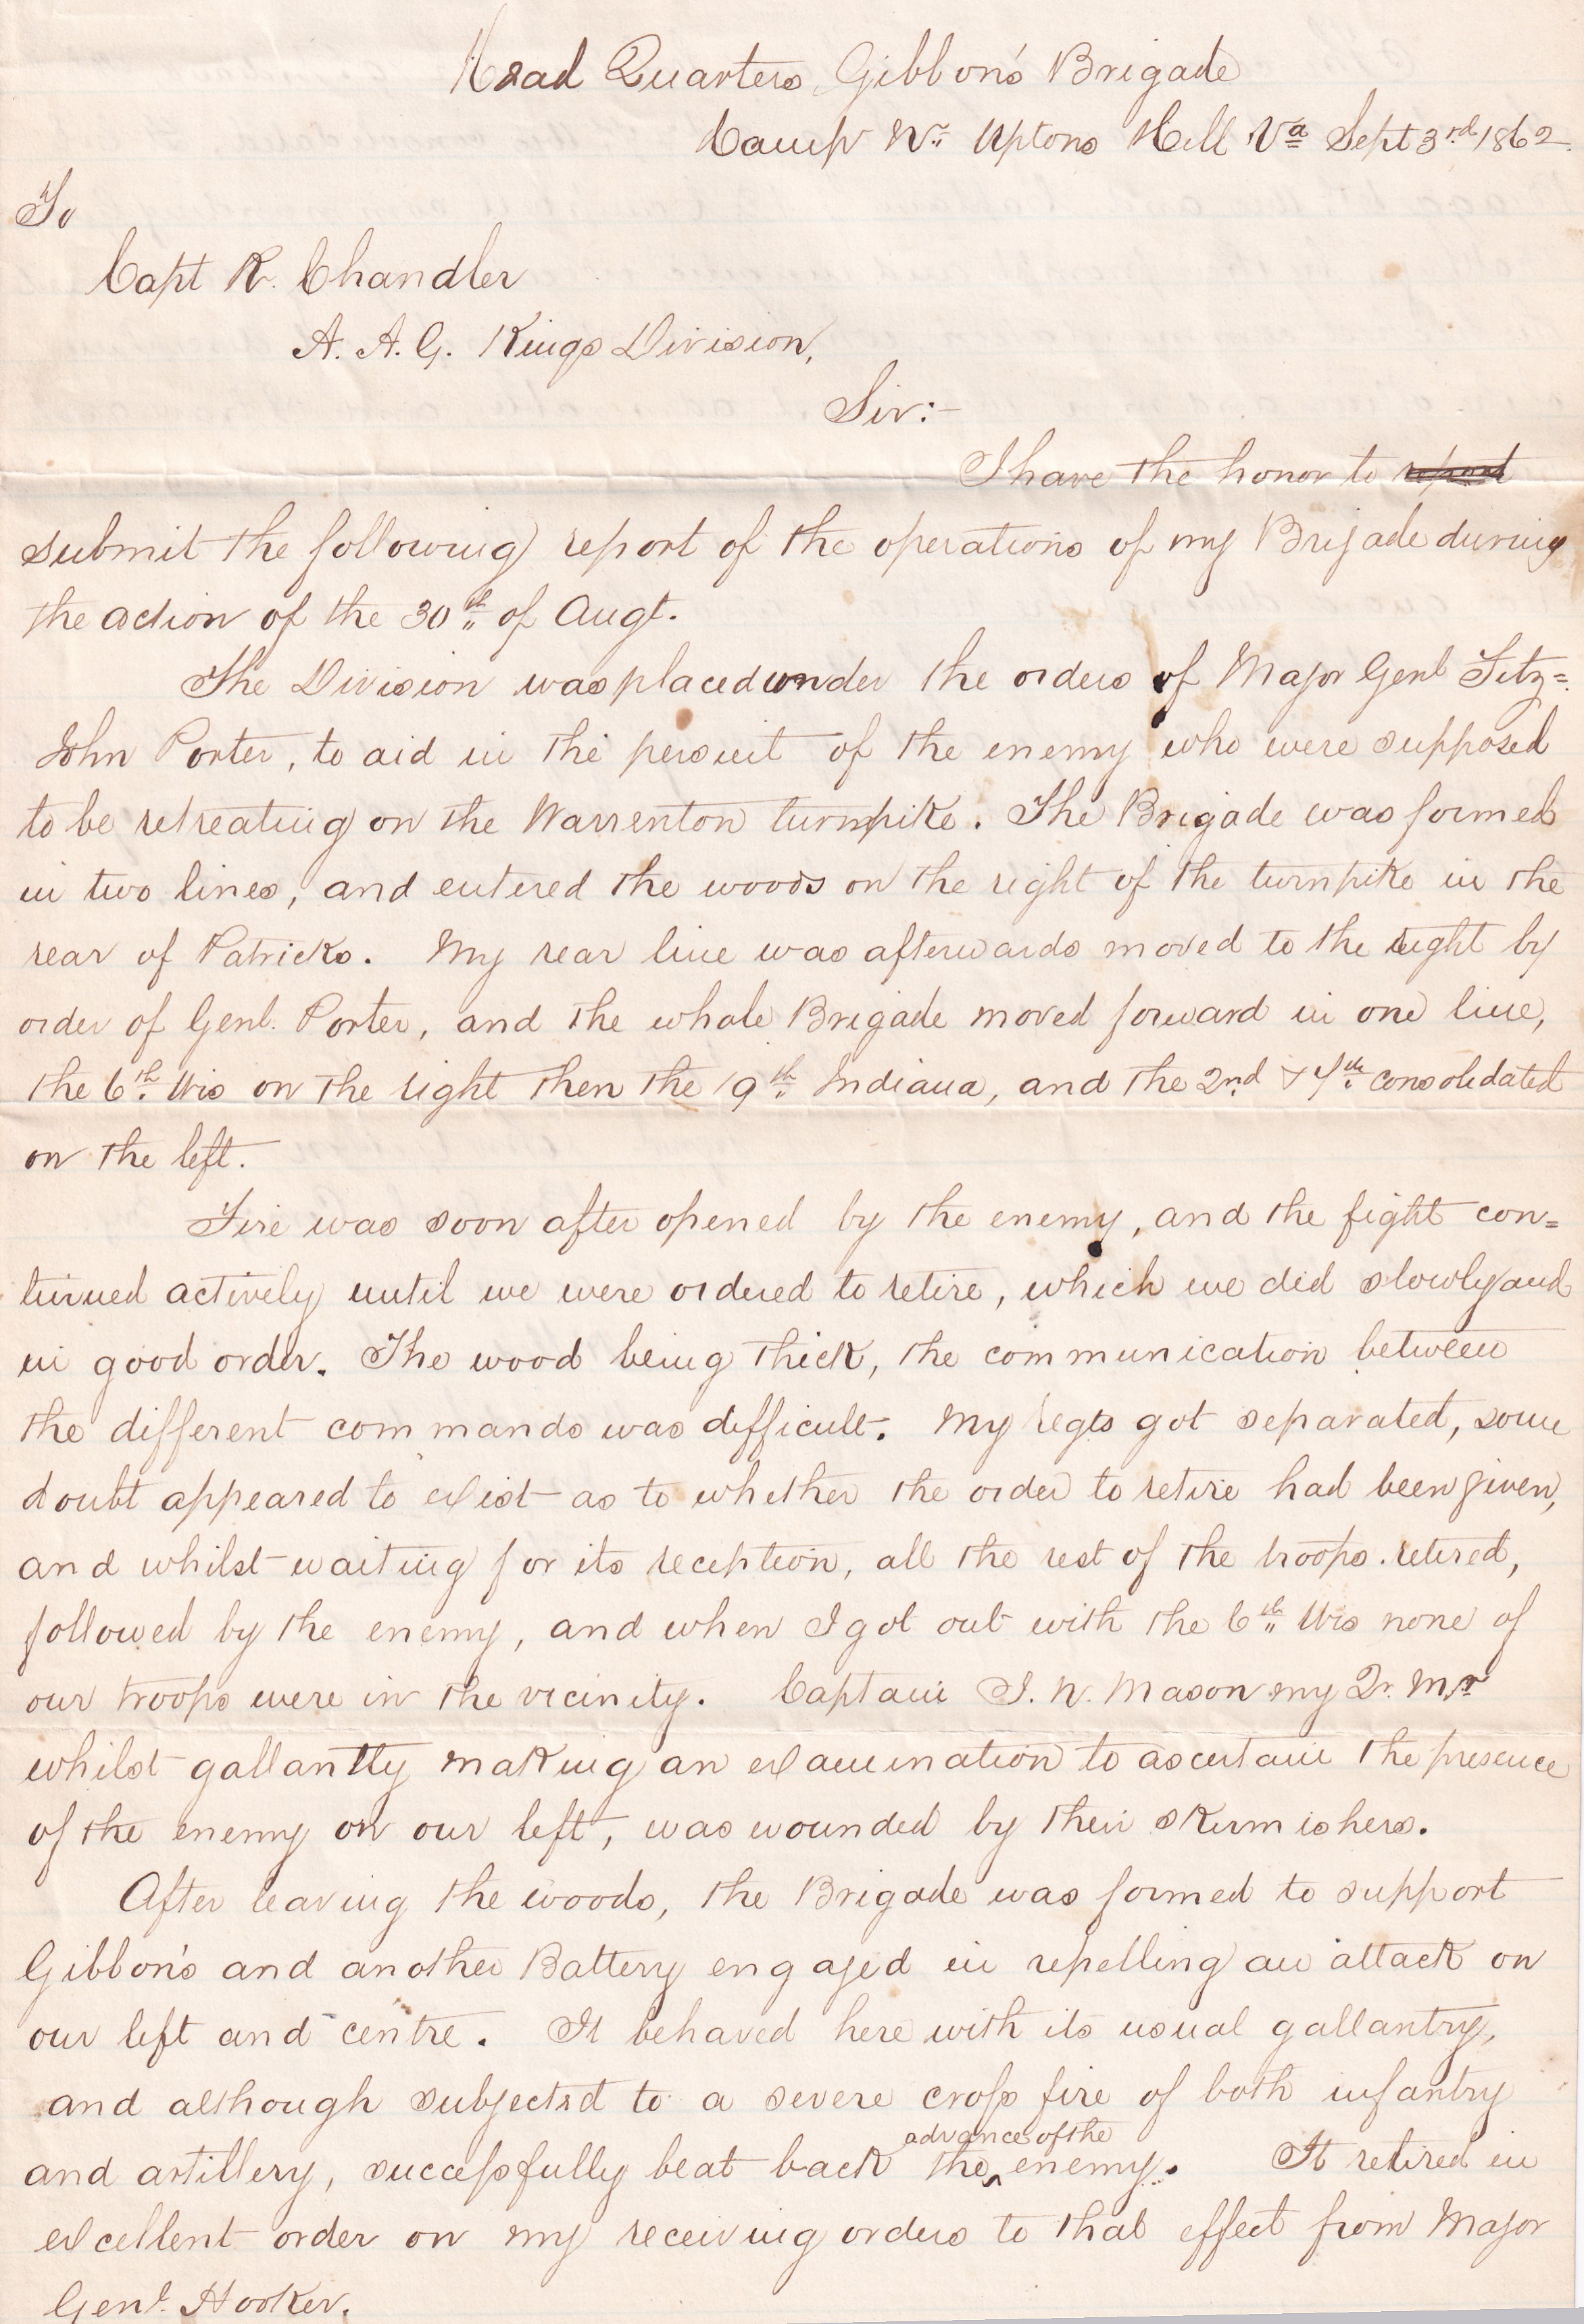 Head Quarters Gibbon's Brigade
Camp Nr. Uptons Hill Va Sept 3rd 1862.
To
Capt R. Chandler
A. A. G. Kings Division,
Sir:-
I have the honor to report
submit the following report of the operations of my Brigade during
the action of the 30th of Augt.
The Division was placed under the orders of Major Genl Fitz=
John Porter, to aid in the persuit of the enemy who were supposed
to be retreating on the Warrenton turnpike. The Brigade was formed
in two lines, and entered the woods on the right of the turnpike in the
rear of Patricks. My rear line was afterwards moved to the right by
order of Genl. Porter, and the whole Brigade moved forward in one line,
the 6th. Wis on the right then the 19th. Indiana, and the 2nd & 7th. consolidated
on the left.
Fire was soon after opened by the enemy, and the fight con=
tinued actively until we were ordered to retire, which we did slowly and
in good order. The wood being thick, the communication between
the different commands was difficult. My regts got separated, some
doubt appeared to exist as to whether the order to retire had been given,
and whilst waiting for its reception, all the rest of the troops retired,
followed by the enemy, and when I got out with the 6th Wis none of
our troops were in the vicinity. Captain J. N. Mason my Qr. Mr
whilst gallantly making an examination to ascertain the presence
of the enemy on our left, was wounded by their skirmishers.
After leaving the woods, the Brigade was formed to support
Gibbon's and another Battery engaged in repelling an attack on
our left and centre. It behaved here with its usual gallantry,
and although subjected to a severe cross fire of both infantry
advance of the
and artillery, successfully beat back the ‸ enemy. It retired in
excellent order on my receiving orders to that effect from Major
Genl. Hooker.